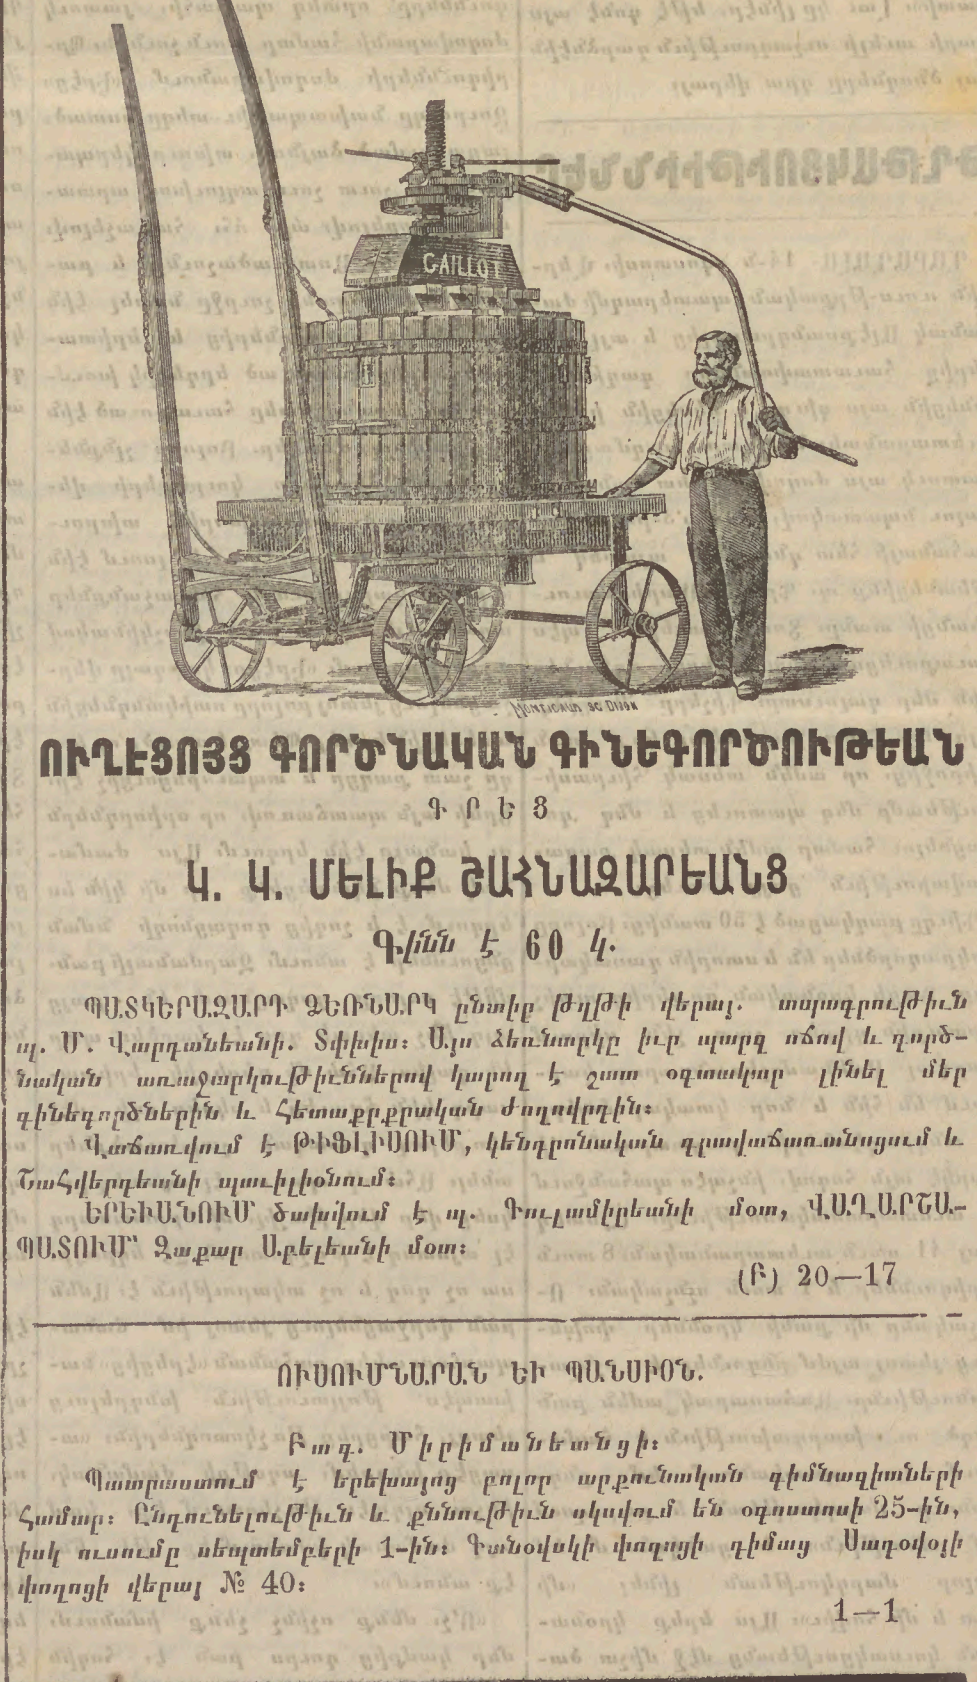 GAILLOT
MONTIGAUD SC DIJON
ՈՒՂԷՑՈՅՑ ԳՈՐԾՆԱԿԱՆ ԳԻՆԵԳՈՐԾՈՒԹԵԱՆ
ԳՐԵՑ
Կ. Կ. ՄԵԼԻՔ ՇԱՀՆԱԶԱՐԵԱՆՑ
Գինն է 60 կ.
ՊԱՏԿԵՐԱԶԱՐԴ ՁԵՌՆԱՐԿ ընտիր թղթի վերայ. տպագրութիւն
պ. Մ. Վարդանեանի. Տփխիս: Այս ձեռնարկը իւր պարզ ոճով և գործ-
նական առաջարկութիւններով կարող է շատ օգտակար լինել մեր
գինեգործներին և հետաքրքրական ժողովրդին:
Վաճառվում է ԹԻՖԼԻՍՈՒՄ, կենդրոնական գրավաճառանոցում և
Շահվերդեանի պաւիլիօնում:
ԵՐԵՒԱՆՈՒՄ ծախվում է պ. Գուլամիրեանի մօտ, ՎԱՂԱՐՇԱ-
ՊԱՏՈՒՄ՝ Զաքար Աբելեանի մօտ:
(Բ) 20—17
ՈՒՍՈՒՄՆԱՐԱՆ ԵՒ ՊԱՆՍԻՕՆ.
Բագ. Միրիմանեանցի:
Պատրաստում է երեխայոց բոլոր արքունական գիմնազիաների
համար: Ընդունելութիւն և քննութիւն սկսվում են օգոստոսի 25-ին,
իսկ ուսումը սեպտեմբերի 1-ին: Գանօվսկի փողոցի դիմաց Սադօվօյի
փողոցի վերայ № 40:
1—1